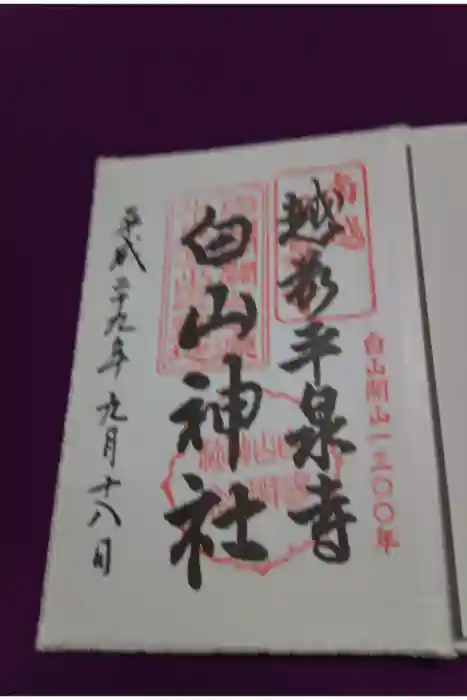 白山開山一三〇〇年
越前平泉寺
白山神社
平成二十九年九月十八日